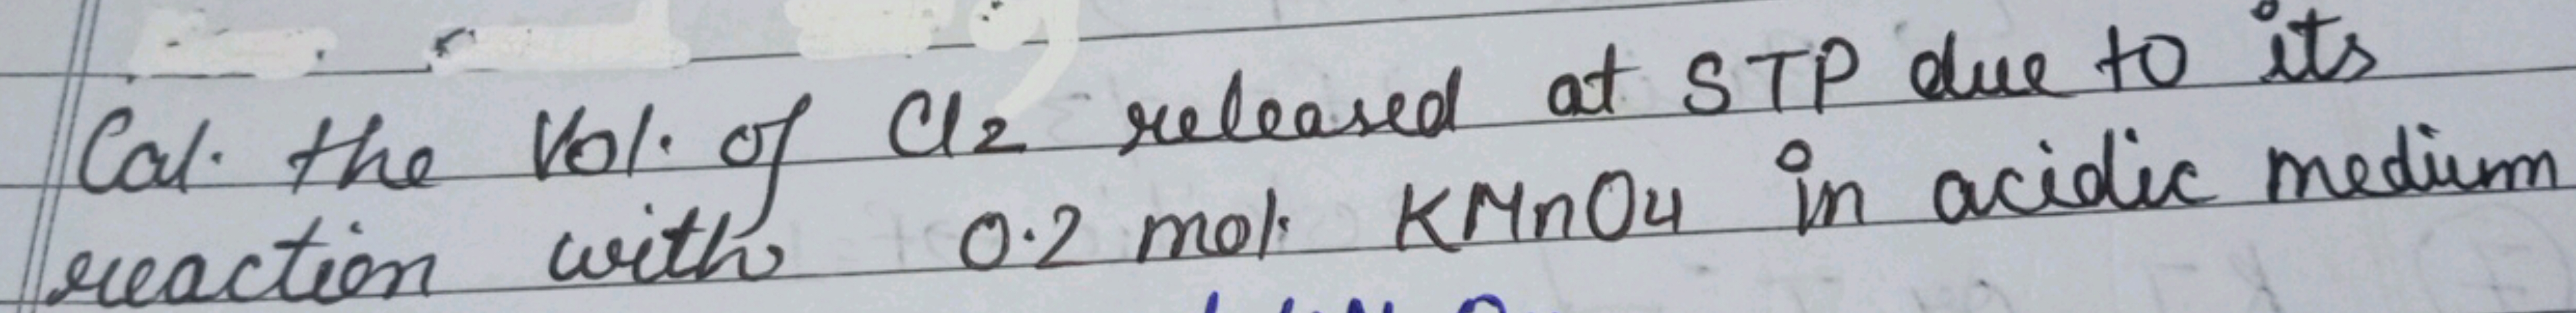 Cal. the Vol. of Cl2 released at STP due to its
reaction with 0.2 mol. KMnO4 in acidic medium